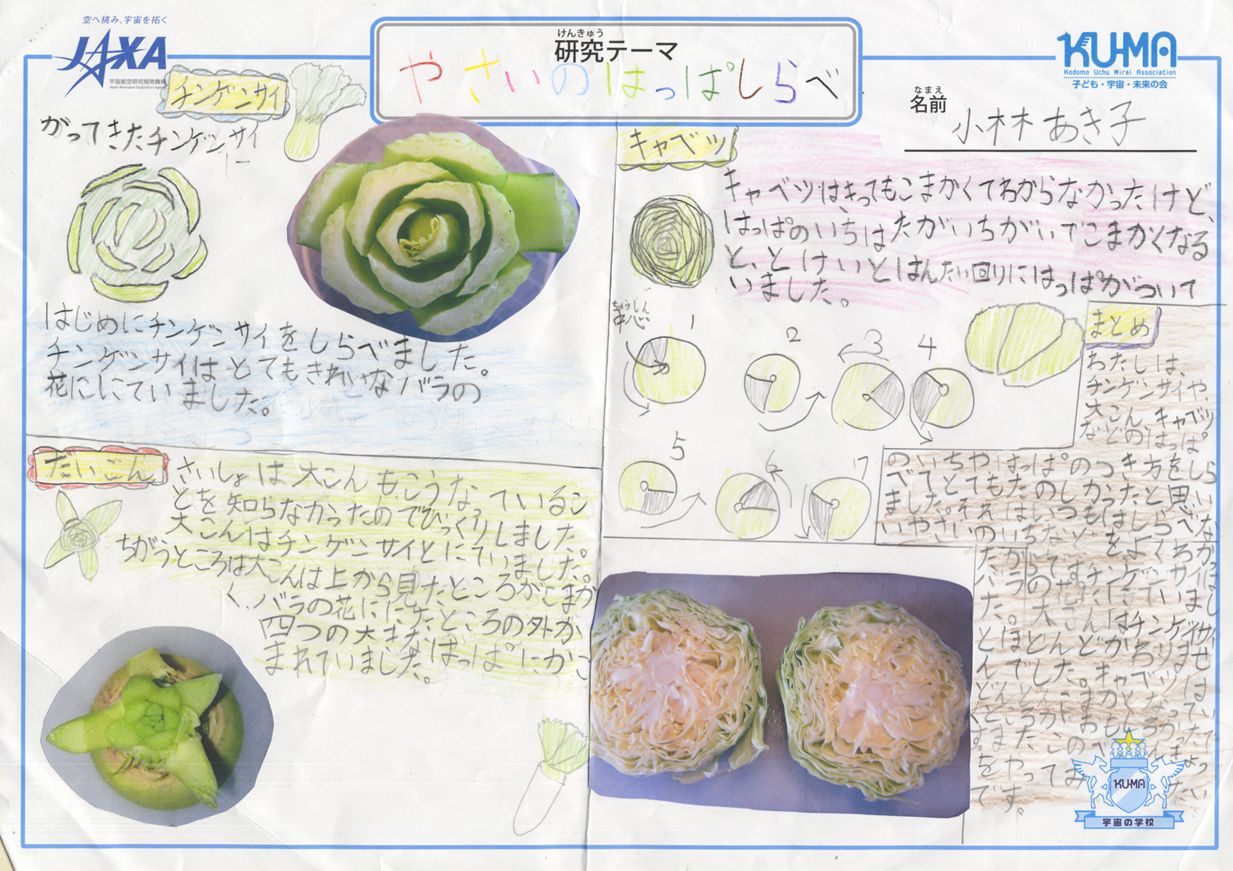 空へ挑み、宇宙を拓く
JAXA
宇宙航空研究開発機構
Japan Aerospace Exploration Agency
けんきゅう
研究テーマ
やさいのはっぱしらべ
KU-MA
Kodomo Uchu Mirai Association
子ども・宇宙・未来の会
なまえ
名前
小林 あき子
チンゲンサイ
がってきたチンゲンサイ
はじめにチンゲンサイをしらべました。
チンゲンサイはとてもきれいなバラの
花ににていました。
だいこん
さいしょは大こんもこうなっているこ
とを知らなかったのでびっくりしました。
大こんはチンゲンサイとにていました。
ちがうところは大こんは上から見たところがこまか
く、バラの花ににたところの外が
四つの大きなはっぱにかこ
まれていました。
キャベツ
キャベツは、きってもこまかくてわからなかったけど、
はっぱのいちはたがいちがいでこまかくなる
と、とけいとはんたい回りにはっぱがついて
いました。
ちゅうしん
1
2
3
4
5
6
7
まとめ
わたしは、
チンゲンサイや、
大こん、キャベツ
などのはっぱ
のいちやはっぱのつき方をしら
べてとてもたのしかったと思い
ました。それはいつもはしらべな
いやさいのいちなどをよくわかっ
KU-MA
宇宙の学校